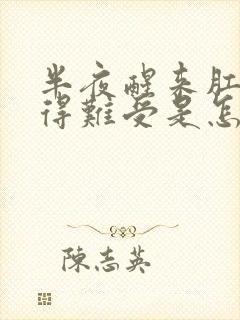 半夜醒来肛
得難受是怎
陳志英